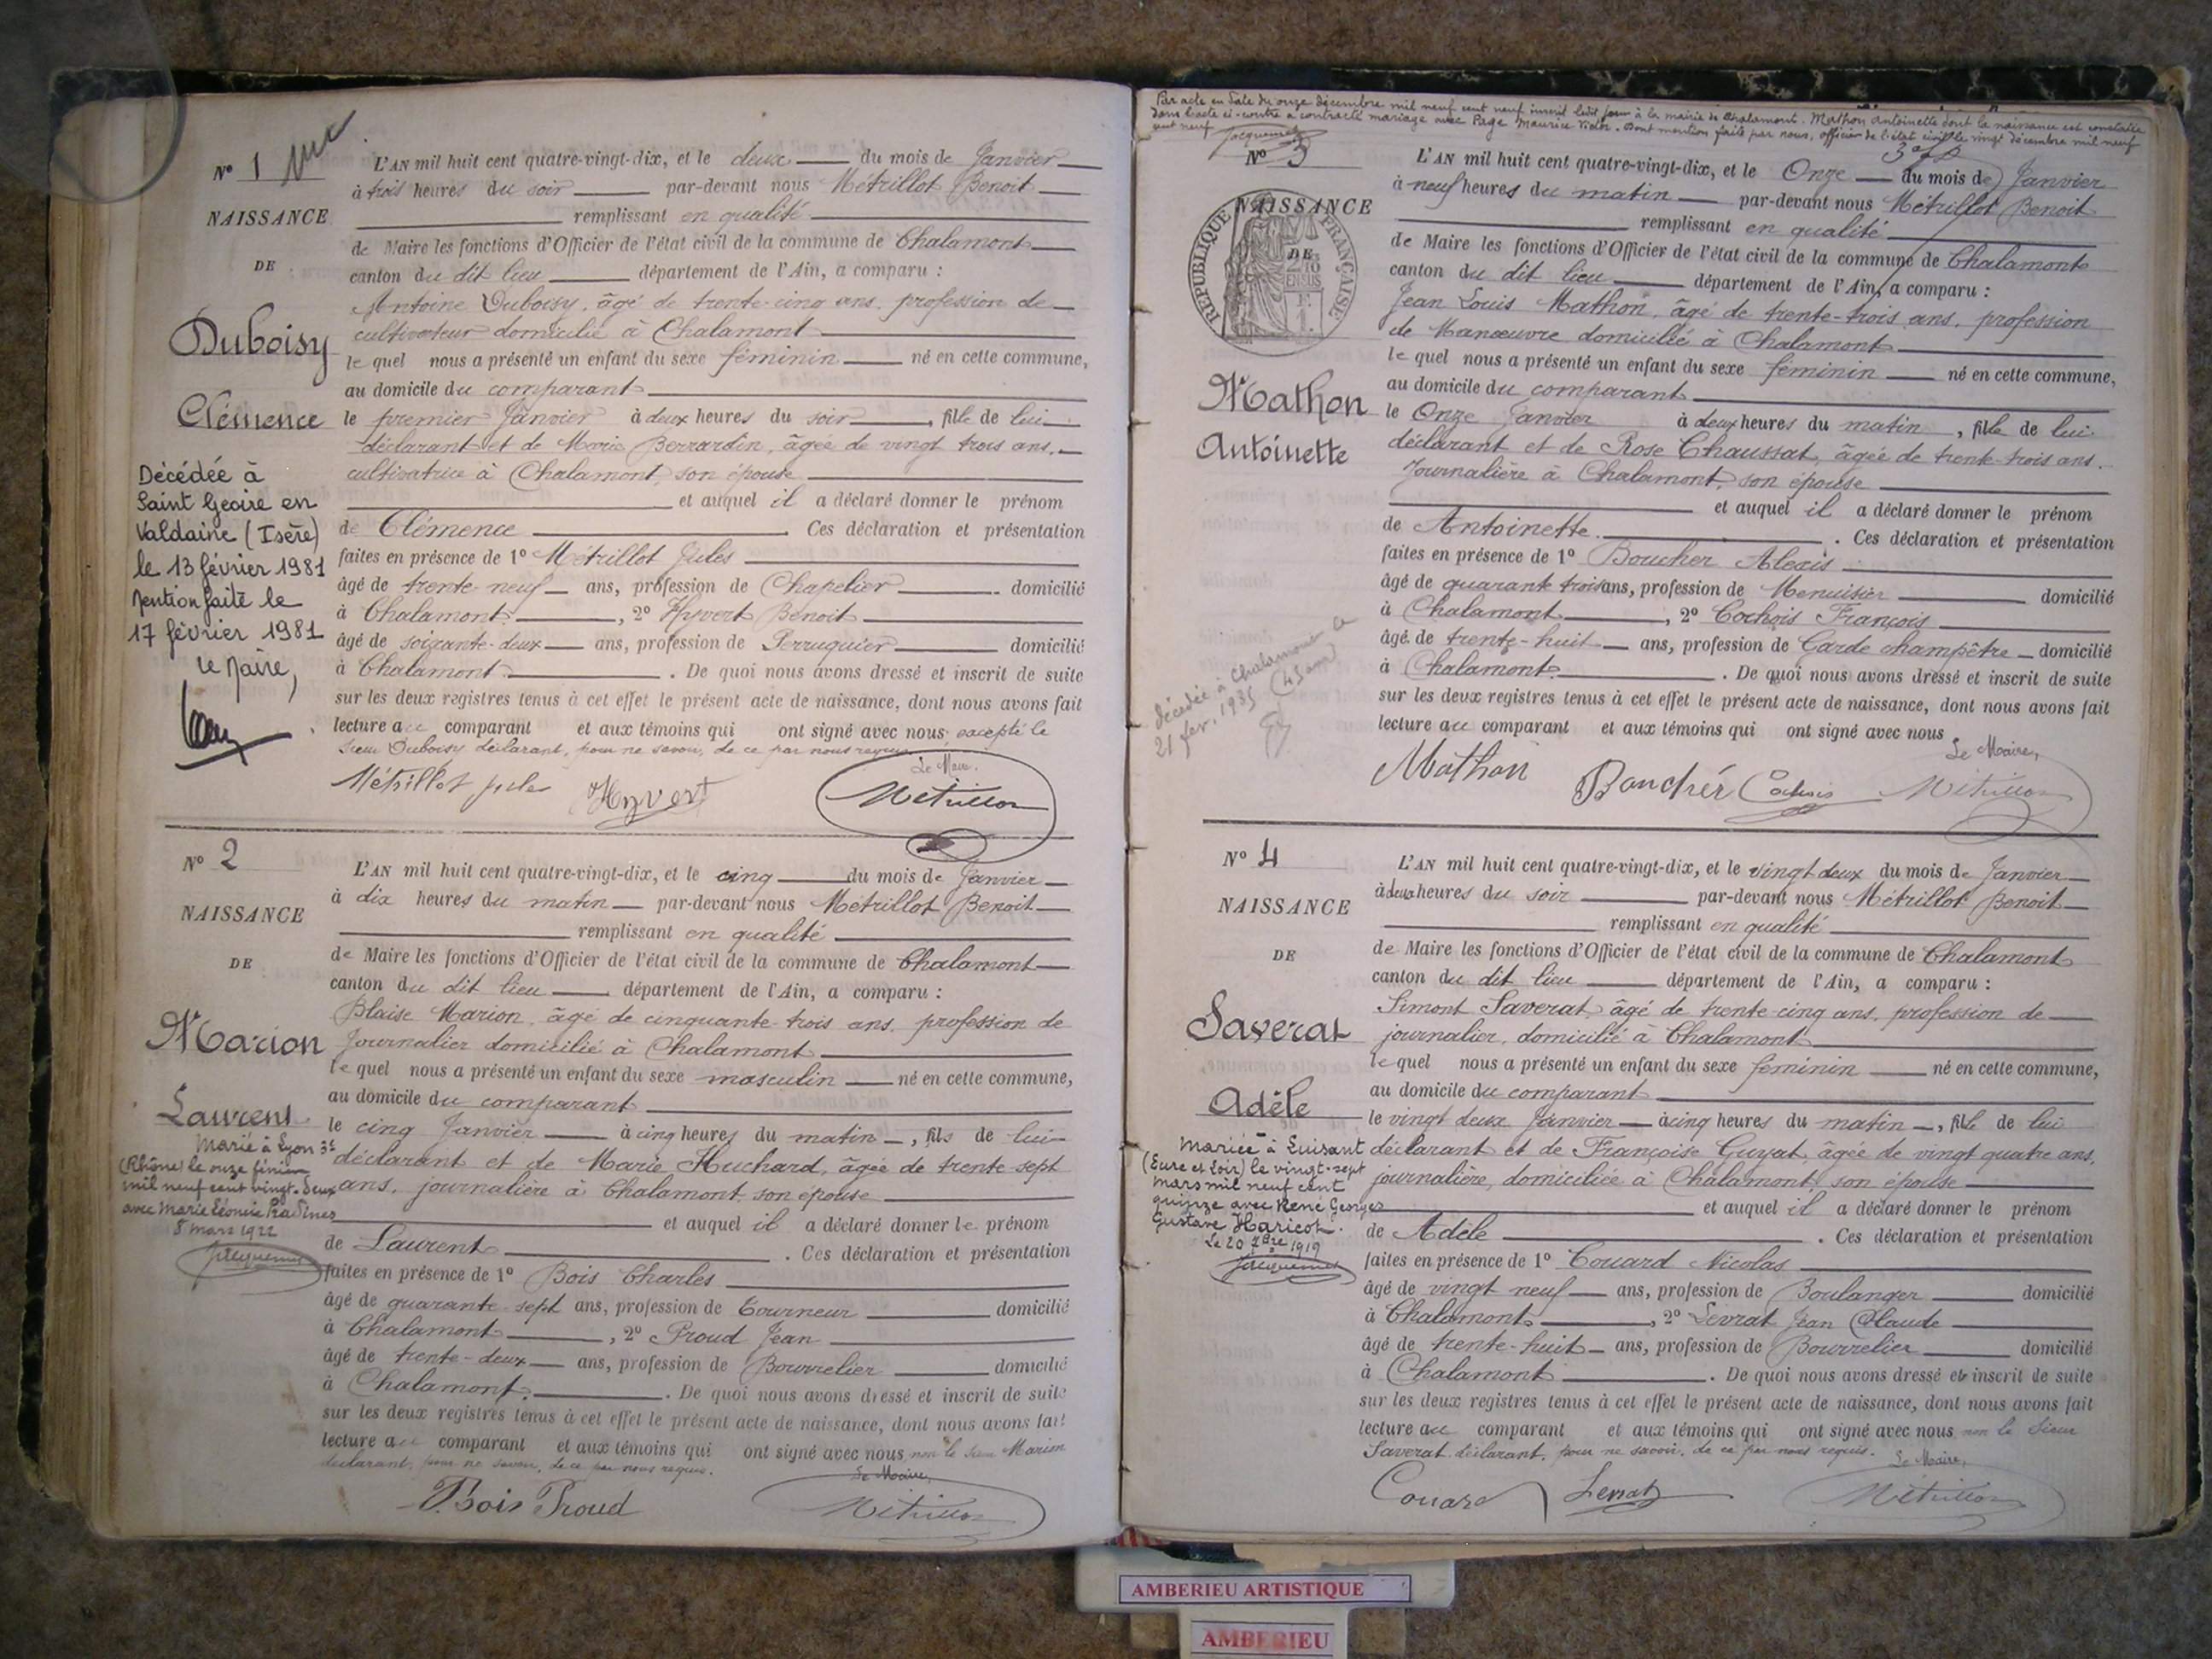 Nº 1
NAISSANCE
DE
Duboisy
Clémence
Décédée à
Saint Geoire en
Valdaine (Isère)
le 13 février 1981
Mention faite le
17 février 1981
Le Maire,
L'AN mil huit cent quatre-vingt-dix, et le deux du mois de Janvier
à trois heures du soir par-devant nous Métrillot Benoit
remplissant en qualité
de Maire les fonctions d'Officier de l'état civil de la commune de Chalamont
canton du dit lieu département de l'Ain, a comparu :
Antoine Duboisy, âgé de trente-cinq ans, profession de
cultivateur domicilié à Chalamont
le quel nous a présenté un enfant du sexe féminin né en cette commune,
au domicile du comparant
le premier Janvier à deux heures du soir, fille de lui
déclarant et de Marie Berrardin, âgée de vingt trois ans,
cultivatrice à Chalamont, son épouse
et auquel il a déclaré donner le prénom
de Clémence. Ces déclaration et présentation
faites en présence de 1º Métrillot Jules
âgé de trente-neuf ans, profession de Chapelier domicilié
à Chalamont, 2º Hyvert Benoit
âgé de soixante-deux ans, profession de Perruquier domicilié
à Chalamont. De quoi nous avons dressé et inscrit de suite
sur les deux registres tenus à cet effet le présent acte de naissance, dont nous avons fait
lecture au comparant et aux témoins qui ont signé avec nous excepté le
sieur Duboisy déclarant, pour ne savoir, de ce par nous requis.
Le Maire.
Métrillot jules Hyvert Métrillot
Nº 2
NAISSANCE
DE
Marion
Laurent
Marié à Lyon 3e
(Rhône) le onze février
mil neuf cent vingt-deux
avec Marie Léonie Pradines
8 mars 1922
Jacquemet
L'AN mil huit cent quatre-vingt-dix, et le cinq du mois de Janvier
à dix heures du matin par-devant nous Métrillot Benoit
remplissant en qualité
de Maire les fonctions d'Officier de l'état civil de la commune de Chalamont
canton du dit lieu département de l'Ain, a comparu :
Blaise Marion, âgé de cinquante-trois ans, profession de
Journalier domicilié à Chalamont
le quel nous a présenté un enfant du sexe masculin né en cette commune,
au domicile du comparant
le cinq Janvier à cinq heures du matin, fils de lui
déclarant et de Marie Huchard, âgée de trente-sept
ans, journalière à Chalamont, son épouse
et auquel il a déclaré donner le prénom
de Laurent. Ces déclaration et présentation
faites en présence de 1º Bois Charles
âgé de quarante-sept ans, profession de Tourneur domicilié
à Chalamont, 2º Proud Jean
âgé de trente-deux ans, profession de Bourrelier domicilié
à Chalamont. De quoi nous avons dressé et inscrit de suite
sur les deux registres tenus à cet effet le présent acte de naissance, dont nous avons fait
lecture au comparant et aux témoins qui ont signé avec nous non le sieur Marion
déclarant, pour ne savoir, de ce par nous requis.
Le Maire,
Bois Proud Métrillot
Par acte en date du onze décembre mil neuf cent neuf inscrit ledit jour à la mairie de Chalamont. Mathon Antoinette dont la naissance est constatée
dans l'acte ci-contre a contracté mariage avec Page Maurice Victor. Dont mention faite par nous, officier de l'état civil le vingt décembre mil neuf
cent neuf Jacquemet
Nº 3
NAISSANCE
DE
REPUBLIQUE FRANÇAISE
Mathon
Antoinette
décédée à Chalamont le
21 fev. 1935 (45 ans)
L'AN mil huit cent quatre-vingt-dix, et le Onze du mois de Janvier
à neuf heures du matin par-devant nous Métrillot Benoit
remplissant en qualité
de Maire les fonctions d'Officier de l'état civil de la commune de Chalamont
canton du dit lieu département de l'Ain, a comparu :
Jean Louis Mathon, âgé de trente-trois ans, profession
de Manœuvre domicilié à Chalamont
le quel nous a présenté un enfant du sexe féminin né en cette commune,
au domicile du comparant
le Onze Janvier à deux heures du matin, fille de lui
déclarant et de Rose Chaussat, âgée de trente-trois ans.
Journalière à Chalamont, son épouse
et auquel il a déclaré donner le prénom
de Antoinette. Ces déclaration et présentation
faites en présence de 1º Boucher Alexis
âgé de quarante trois ans, profession de Menuisier domicilié
à Chalamont, 2º Cochois François
âgé de trente-huit ans, profession de Garde champêtre domicilié
à Chalamont. De quoi nous avons dressé et inscrit de suite
sur les deux registres tenus à cet effet le présent acte de naissance, dont nous avons fait
lecture au comparant et aux témoins qui ont signé avec nous
Le Maire,
Mathon Bouchér Cochois Métrillot
Nº 4
NAISSANCE
DE
Saverat
Adèle
Mariée à Luisant
(Eure et Loir) le vingt-sept
mars mil neuf cent
quinze avec René Georges
Gustave Haricot.
Le 20 xbre 1919
Jacquemet
L'AN mil huit cent quatre-vingt-dix, et le vingt deux du mois de Janvier
à deux heures du soir par-devant nous Métrillot Benoit
remplissant en qualité
de Maire les fonctions d'Officier de l'état civil de la commune de Chalamont
canton du dit lieu département de l'Ain, a comparu :
Simont Saverat, âgé de trente-cinq ans, profession de
journalier, domicilié à Chalamont
le quel nous a présenté un enfant du sexe féminin né en cette commune,
au domicile du comparant
le vingt deux Janvier à cinq heures du matin, fille de lui
déclarant et de Françoise Guyat, âgée de vingt quatre ans,
journalière, domiciliée à Chalamont, son épouse
et auquel il a déclaré donner le prénom
de Adèle. Ces déclaration et présentation
faites en présence de 1º Couard Nicolas
âgé de vingt neuf ans, profession de Boulanger domicilié
à Chalamont, 2º Levrat Jean Claude
âgé de trente-huit ans, profession de Bourrelier domicilié
à Chalamont. De quoi nous avons dressé et inscrit de suite
sur les deux registres tenus à cet effet le présent acte de naissance, dont nous avons fait
lecture au comparant et aux témoins qui ont signé avec nous non le Sieur
Saverat déclarant, pour ne savoir, de ce par nous requis.
Le Maire,
Couard Levrat Métrillot
AMBERIEU ARTISTIQUE
AMBERIEU